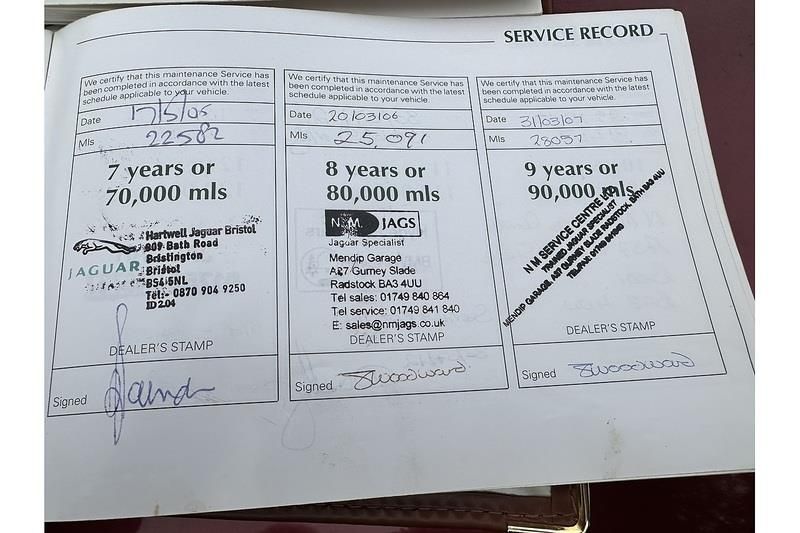 SERVICE RECORD
We certify that this maintenance Service has
been completed in accordance with the latest
schedule applicable to your vehicle.
Date 17/5/05
Mls 22582
7 years or
70,000 mls
Hartwell Jaguar Bristol
909 Bath Road
Brislington
Bristol
BS4 5NL
Tel:- 0870 904 9250
ID204
JAGUAR
DEALER'S STAMP
Signed
We certify that this maintenance Service has
been completed in accordance with the latest
schedule applicable to your vehicle.
Date 20/03/06
Mls 25,091
8 years or
80,000 mls
N.M. JAGS
Jaguar Specialist
Mendip Garage
A37 Gurney Slade
Radstock BA3 4UU
Tel sales: 01749 840 884
Tel service: 01749 841 840
E: sales@nmjags.co.uk
DEALER'S STAMP
Signed SWoodward
We certify that this maintenance Service has
been completed in accordance with the latest
schedule applicable to your vehicle.
Date 31/03/07
Mls 28057
9 years or
90,000 mls
N M SERVICE CENTRE LTD
TRAINED JAGUAR SPECIALIST
MENDIP GARAGE, A37 GURNEY SLADE RADSTOCK, BATH BA3 4UU
DEALER'S STAMP
Signed SWoodward